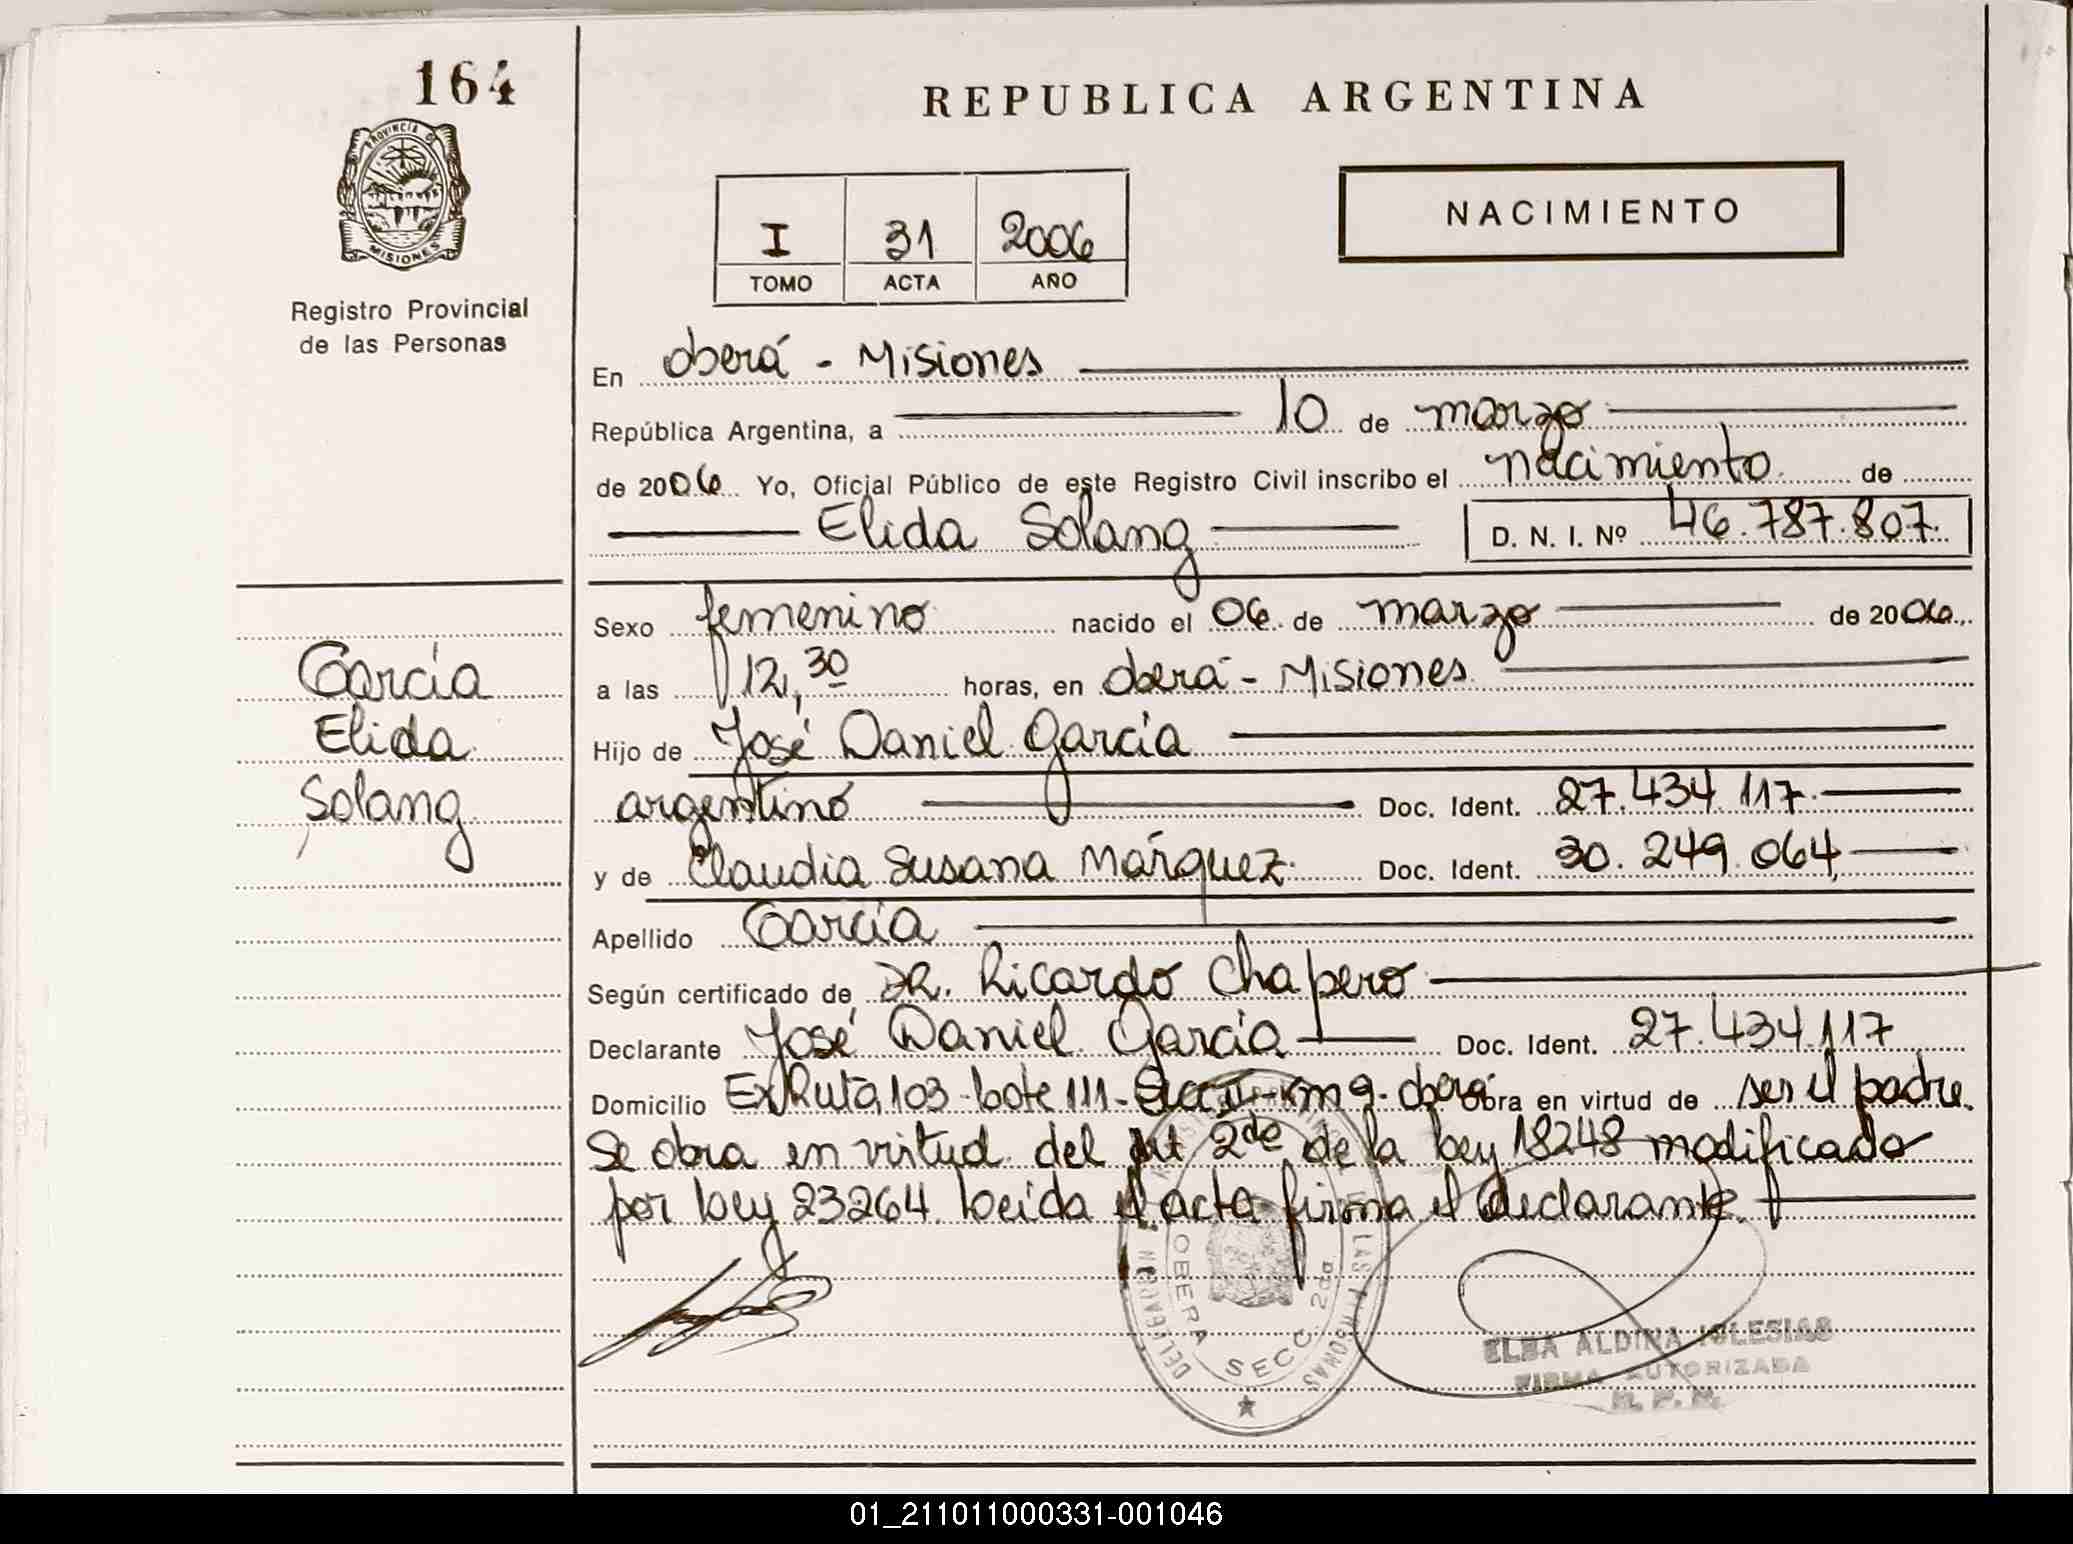 164
PROVINCIA DE
MISIONES
Registro Provincial
de las Personas
REPUBLICA ARGENTINA
I 31 2006
TOMO ACTA AÑO
NACIMIENTO
En Oberá - Misiones
República Argentina, a 10 de marzo
de 2006 Yo, Oficial Público de este Registro Civil inscribo el nacimiento de
Elida Solang D. N. I. Nº 46.787.807.
Sexo femenino nacido el 06 de marzo de 2006
a las 12,30 horas, en Oberá - Misiones
Hijo de José Daniel García
argentino Doc. Ident. 27.434.117
y de Claudia Susana Márquez Doc. Ident. 30.249.064
Apellido García
Según certificado de DR. Ricardo Chapero
Declarante José Daniel García Doc. Ident. 27.434.117
Domicilio Ex Ruta 103 - Lote 111 - Secc II - Km 9 - Oberá Obra en virtud de ser el padre.
Se obra en virtud del Art 2de de la Ley 18248 modificado
por Ley 23264. Leida el acta firma el declarante.
García
Elida
Solang
OBERA SECC. 2da
LAS PERSONAS
ELBA ALDINA IGLESIAS
FIRMA AUTORIZADA
R. P. P.
01_211011000331-001046